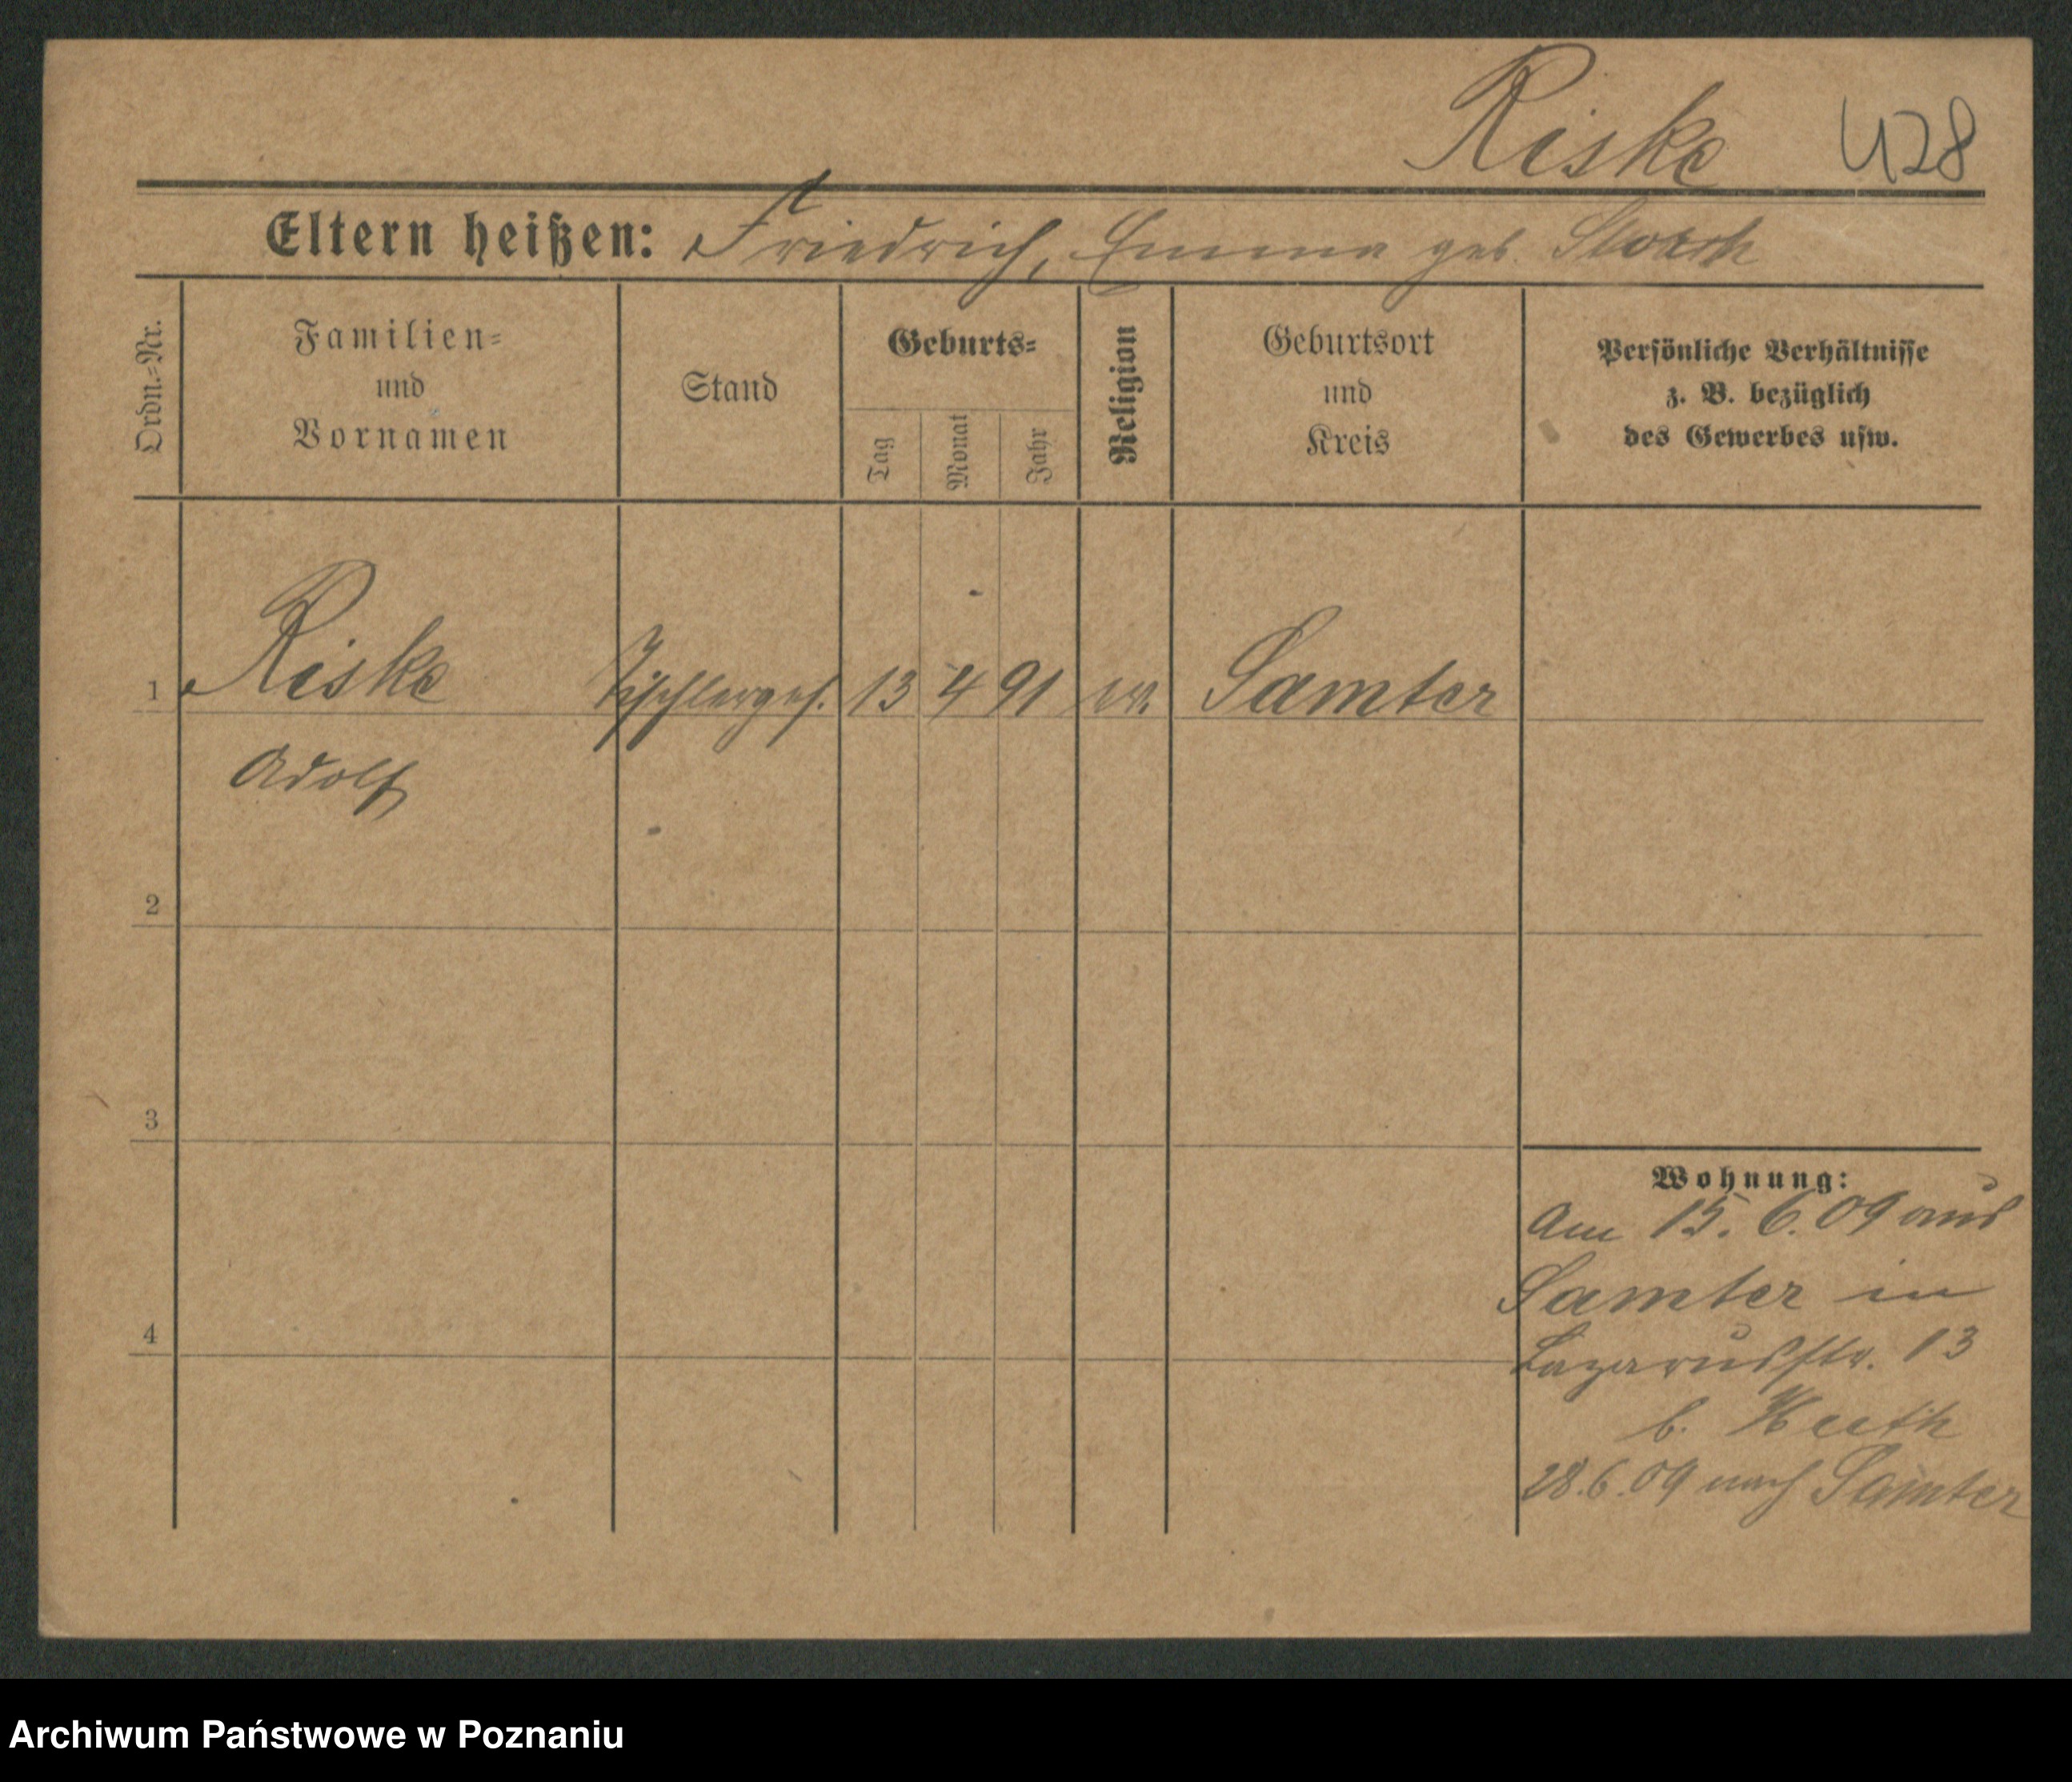 Riske 428
Eltern heißen: Friedrich, Emma geb. Storch
Ordn.-Nr.
Familien-
und
Vornamen
Stand
Geburts-
Tag
Monat
Jahr
Religion
Geburtsort
und
Kreis
Persönliche Verhältnisse
z. B. bezüglich
des Gewerbes usw.
1 Riske Tischlerges. 13 4 91 ev. Samter
Adolf
2
3
4
Wohnung:
Am 15. 6. 09 aus
Samter in
Lazarusstr. 13
b.
28.6.09 nach Samter
Archiwum Państwowe w Poznaniu